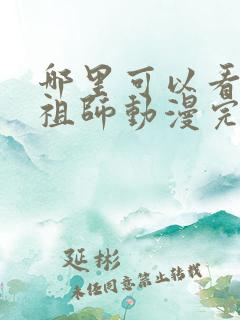 哪里可以看
祖師動漫完
延彬
未经同意禁止转载